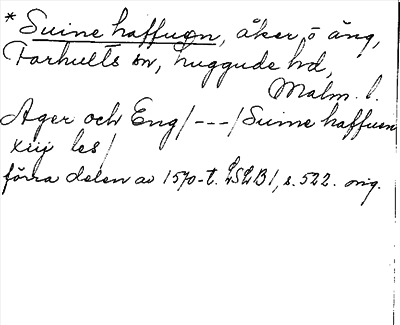 * Suine haffuen, åker o äng,
Farhults sn, Luggude hd,
Malm. l.
Ager och Eng/---/Suine haffuen
xiij les/
förra delen av 1570-t. LSLB1, s. 522. orig.